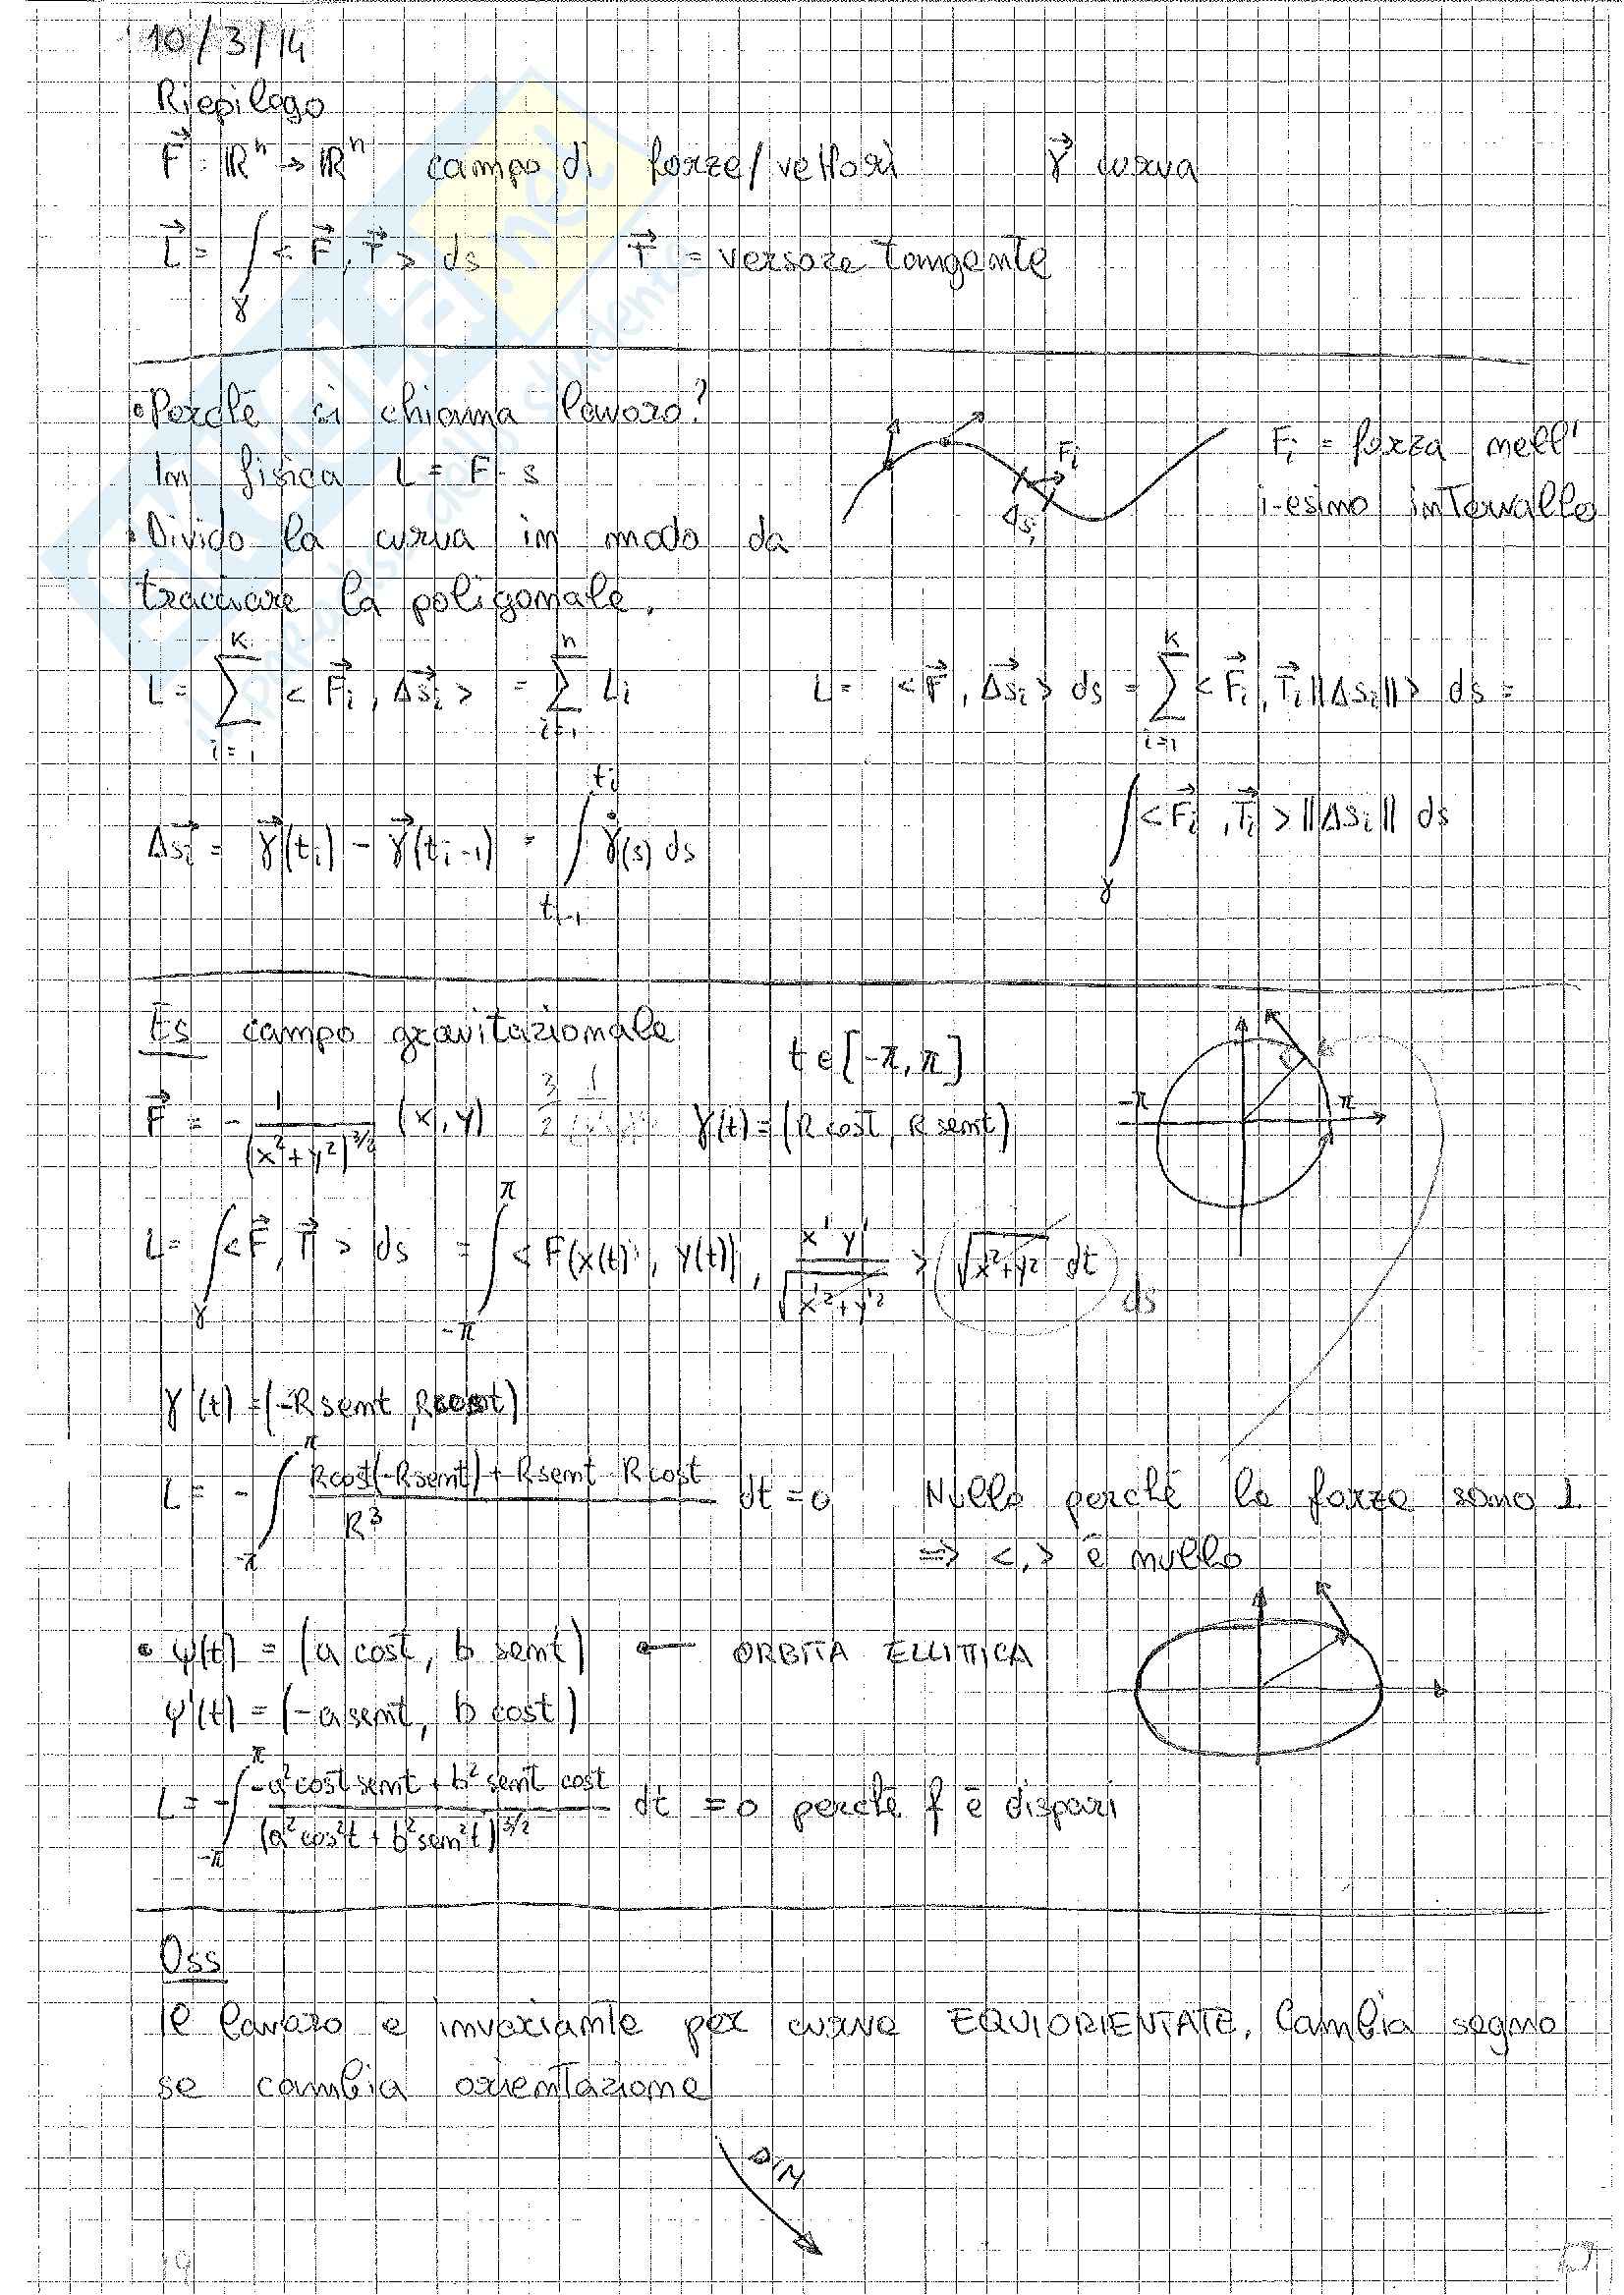 10/3/14
Riepilogo
F⃗: ℝⁿ → ℝⁿ campo di forze/vettori γ⃗ curva
L⃗ = ∫_γ <F⃗, T⃗> ds T⃗ = versore tangente
• Perchè si chiama lavoro?
In fisica L = F · s
Fi
Δsi
Fi = forza nell'
i-esimo intervallo
• Divido la curva in modo da
tracciare la poligonale.
L = ∑_{i=1}^{K} <F⃗i, Δs⃗i> = ∑_{i=1}^{n} Li L = <F⃗, Δs⃗i> ds = ∑_{i=1}^{K} <F⃗i, T⃗i ||Δsi||> ds =
Δs⃗i = γ⃗(ti) - γ⃗(ti-1) = ∫_{ti-1}^{ti} γ̇(s) ds ∫_γ <F⃗i, T⃗i> ||Δsi|| ds
Es campo gravitazionale
t ∈ [-π, π]
F⃗ = - 1/(x²+y²)^{3/2} (x, y) 3/2 γ(t) = (R cost, R sent)
-π π
L = ∫_γ <F⃗, T⃗> ds = ∫_{-π}^{π} <F(x(t), y(t)), x' y'/√(x'²+y'²)> √(x²+y²) dt ds
γ'(t) = (-R sent, R cost)
L = - ∫_{-π}^{π} (Rcost(-Rsent) + Rsent · Rcost)/R³ dt = 0 Nullo perchè la forza sono ⊥
⇒ <,> è nullo
• φ(t) = (a cost, b sent) ← ORBITA ELLITTICA
φ'(t) = (-a sent, b cost)
L = - ∫_{-π}^{π} (-a² cost sent + b² sent cost)/(a²cos²t + b²sen²t)^{3/2} dt = 0 perchè f è dispari
Oss
Il lavoro è invariante per curve EQUIORIENTATE. Cambia segno
se cambia orientazione